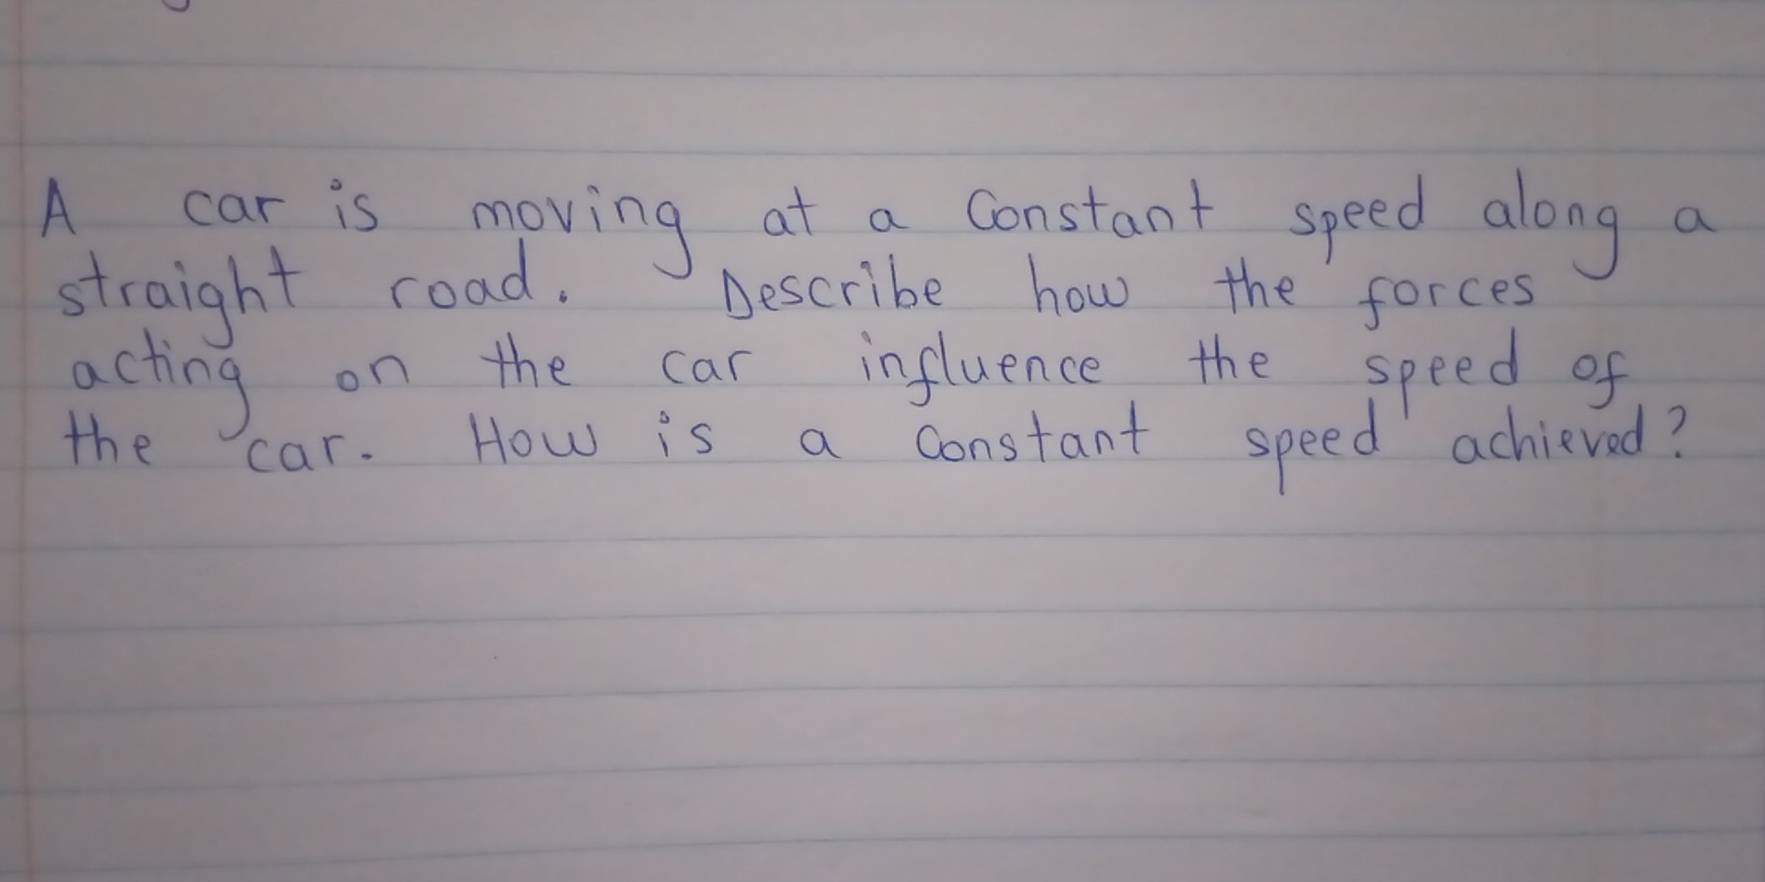 A car is moving at a Constant speed along a
straight road. Describe how the forces
acting on the car influence the speed of
the car. How is a Constant speed achieved?